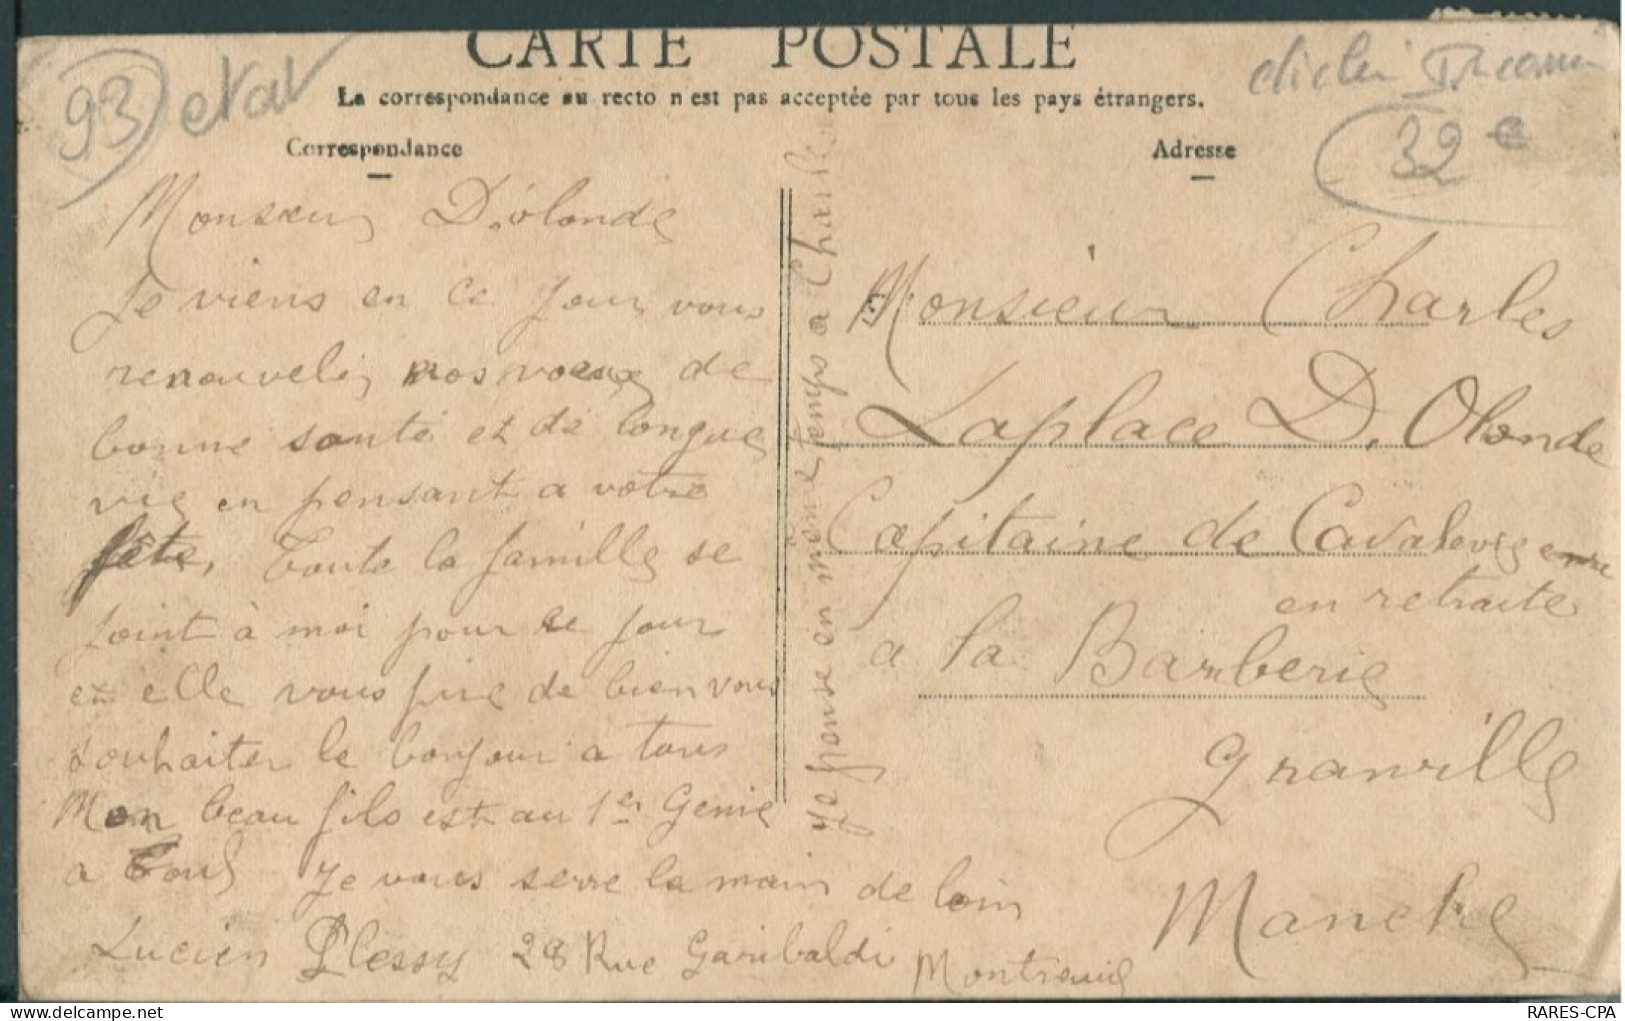 CARTE POSTALE
La correspondance au recto n'est pas acceptée par tous les pays étrangers.
93
32 €
Correspondance
Adresse
Monsieur D'olonde
Je viens en ce jour vous
renouveler nos voeux de
bonne santé et de longue
vie en pensant a votre
fête, Toute la famille se
joint à moi pour ce jour
et elle vous prie de bien vous
souhaiter le bonjour a tous
Mon beau fils est au 1er Genie
a Toul Je vous serre la main de loin
Lucien Plessy 28 Rue Garibaldi Montreuil
Je pionse en même temps a Charles
Monsieur Charles
Laplace D. Olonde
Capitaine de Cavalerie
en retraite
a la Barberie
Granville
Manche
RARES-CPA